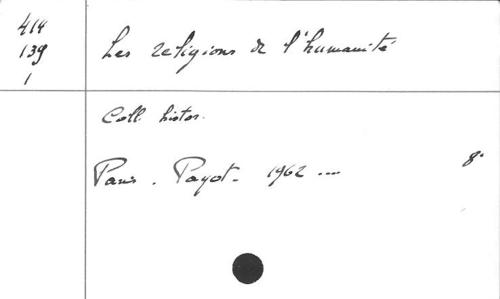 414
139
1
Les religions de l'humanité
Coll. histor.
Paris. Payot. 1962 ....
8°